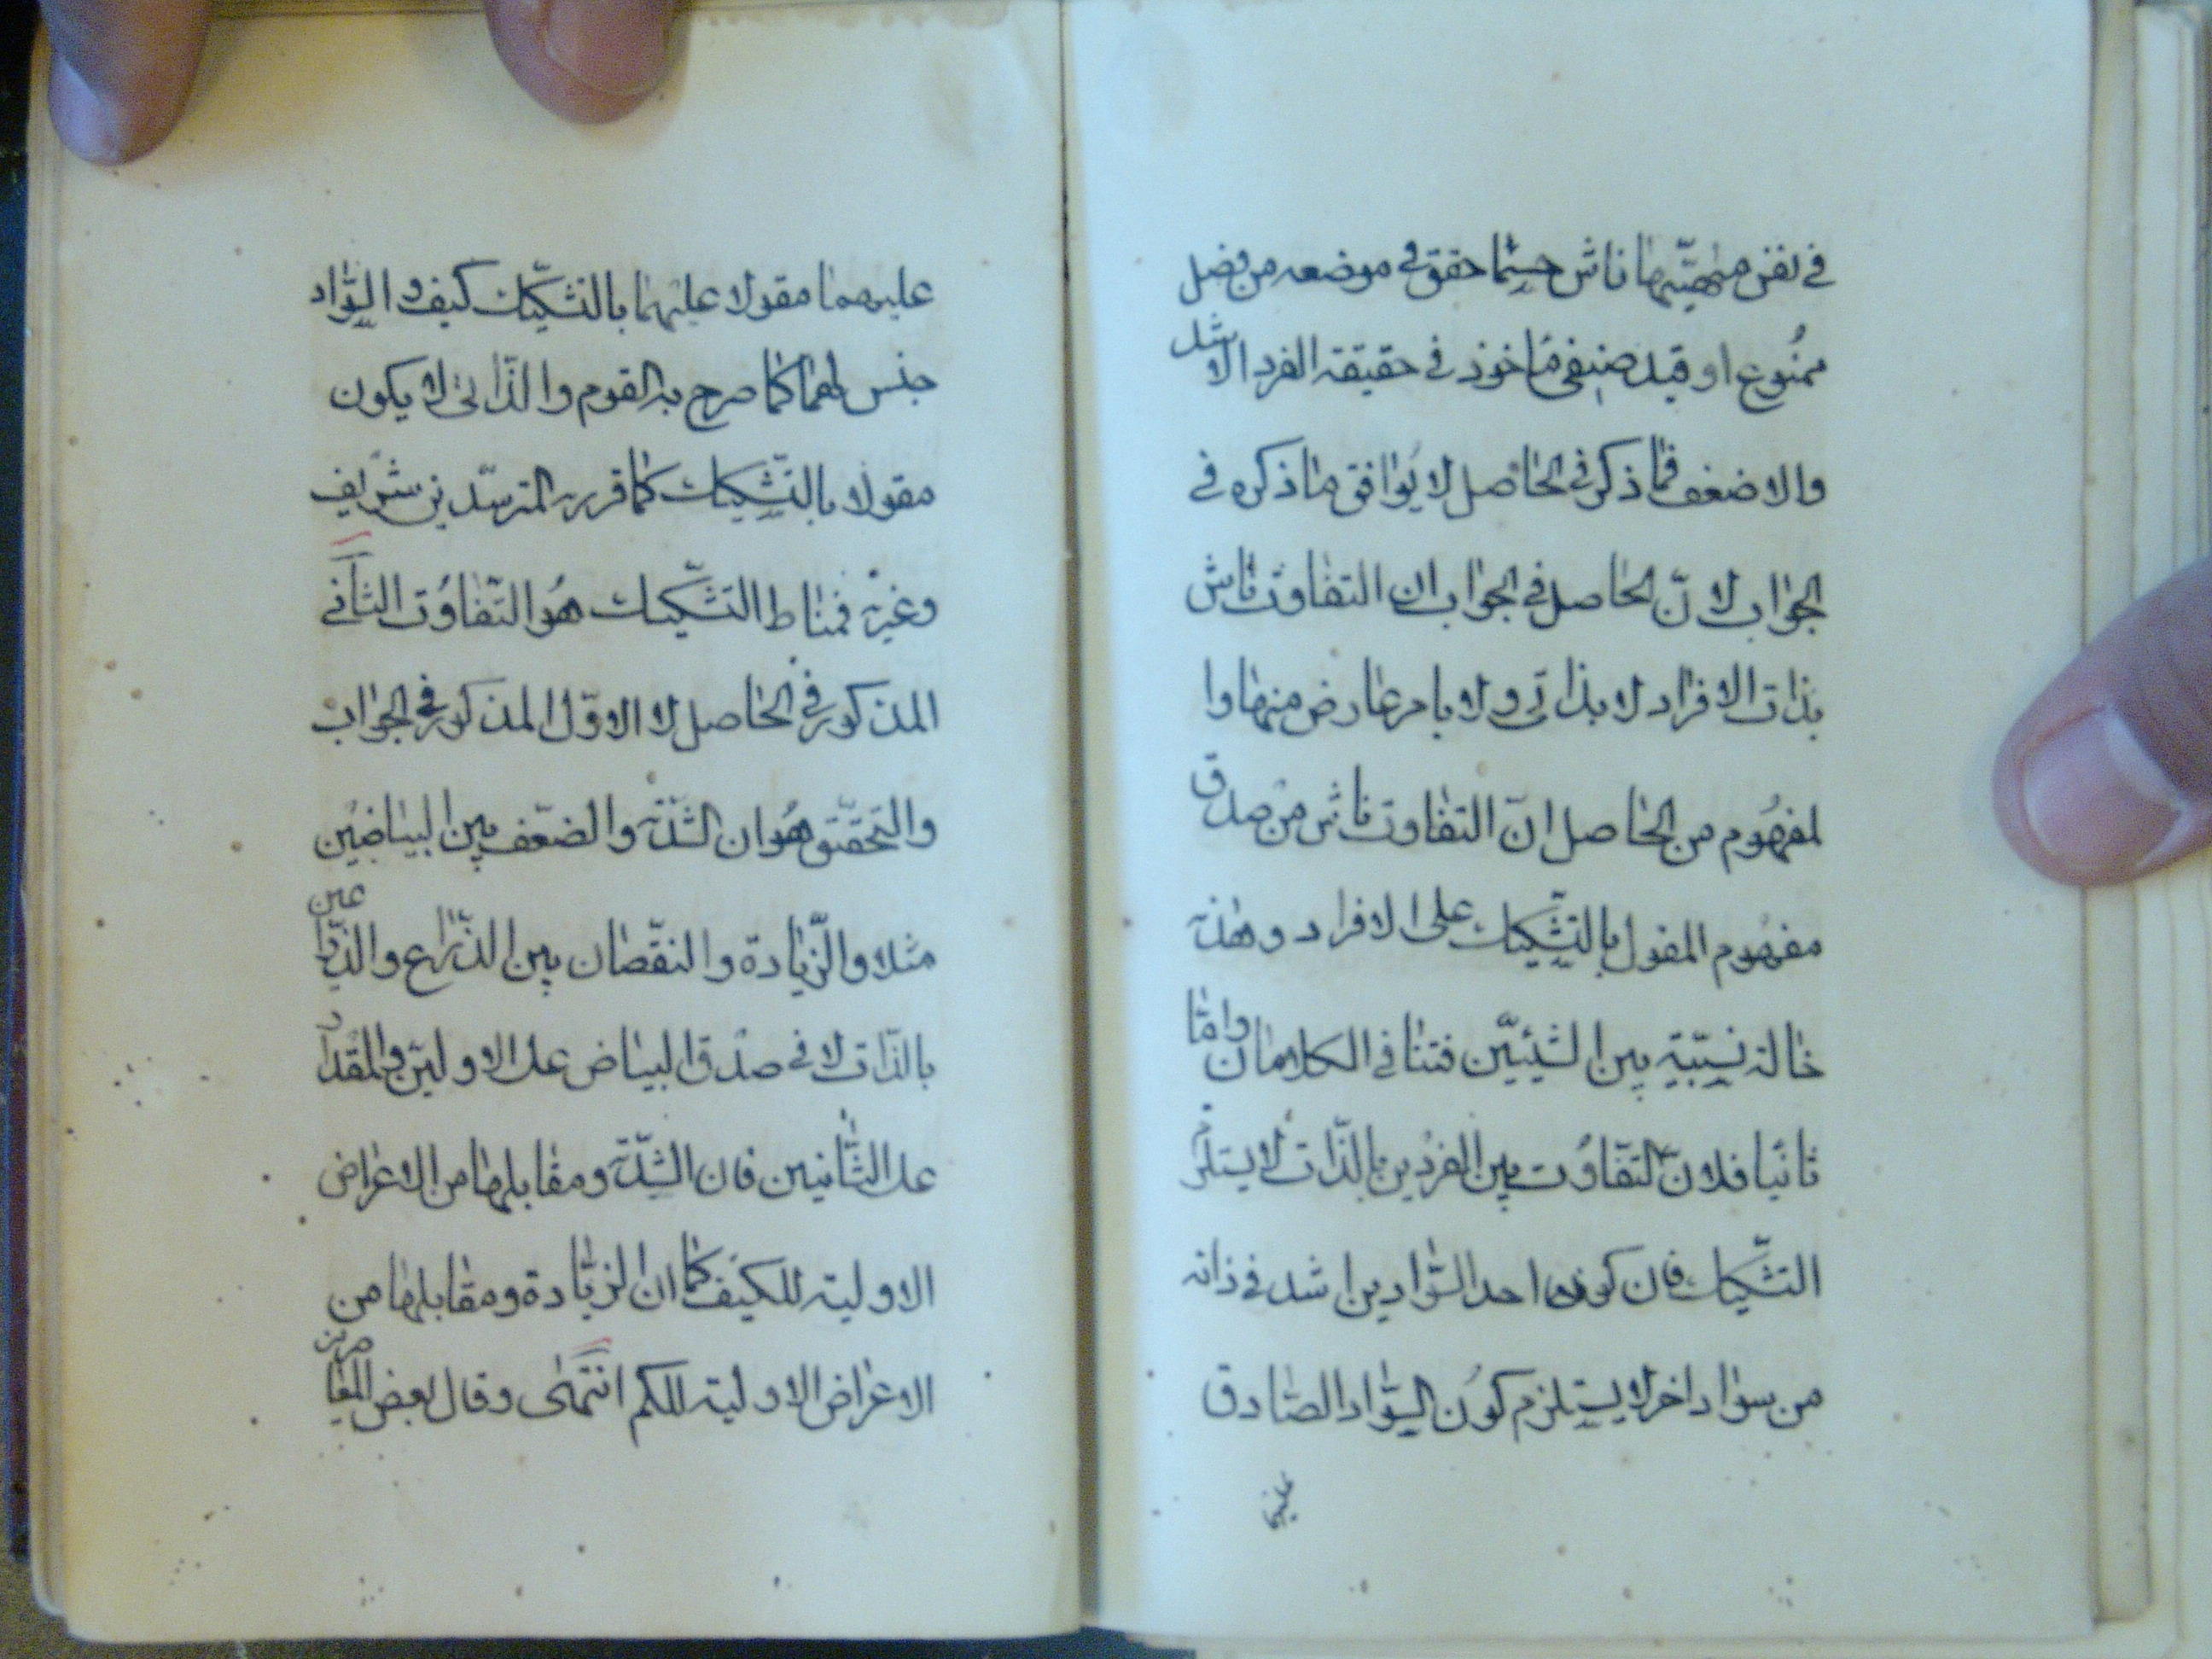 في نفس مهيتهما ناش حسبما حقق في موضعه من فصل
منوع او قيد صنفي ماخوذ في حقيقة الفرد الاشد
والاضعف فما ذكر في الحاصل لا يوافق ما ذكره في
الجواب لانّ الحاصل في الجواب ان التفاوت ناش
بذات الافراد لا بذاتي ولا بامر عارض منهما وا
لمفهوم من الحاصل انّ التفاوت ناش من صدق
مفهوم المقول بالتشكيك على الافراد وهذه
حالة نسبية بين الشيئين فتنافي الكلامان وامّا
ثانيا فلانّ التفاوت بين الفردين بالذّات لا يستلزم
التشكيك فان كون احد السّوادين اشد في ذاته
من سواد اخر لا يستلزم كون السّواد الصّادق
عليهما
عليهما مقولا عليهما بالتشكيك كيف والسّواد
جنس لهما كما صرح به القوم والذّاتي لا يكون
مقولا بالتّشكيك كما قرره المترسّدين شريف
وغيره فمناط التشكيك هو التّفاوت الثاني
المذكور في الحاصل لا الاوّل المذكور في الجواب
والتحقيق هو ان الشدّة والضعف بين البياضين
مثلا والزّيادة والنقصان بين الذّراع والذّراعين
بالذّات لا في صدق البياض على الاولين والمقدار
على الثّانيين فان الشدّة ومقابلها من الاعراض
الاولية للكيف كما ان الزيادة ومقابلها من
الاعراض الاولية للكم انتهى وقال بعض المعاصرين